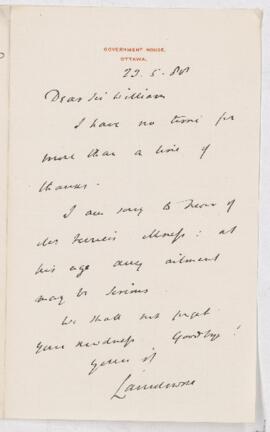 GOVERNMENT HOUSE,
OTTAWA.
23. 5. 88
Dear Sir William
I have no time for
more than a line of
thanks.
I am sorry to hear of
illness: at
his age any ailment
may be serious.
We shall not forget
your kindness. Goodbye!
Yours
Lansdowne